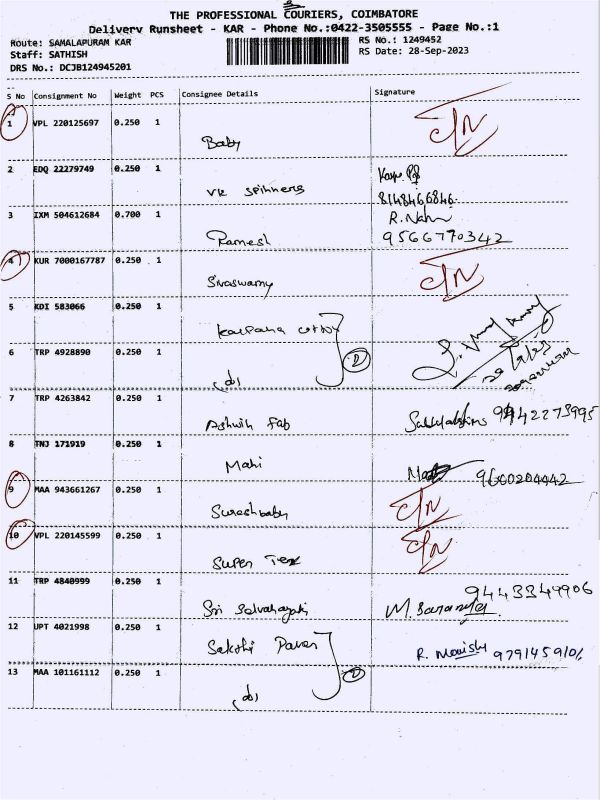 THE PROFESSIONAL COURIERS, COIMBATORE
Delivery Runsheet - KAR - Phone No.:0422-3505555 - Page No.:1
Route: SAMALAPURAM KAR
RS No.: 1249452
Staff: SATHISH
RS Date: 28-Sep-2023
DRS No.: DCJB124945201
S No Consignment No Weight PCS Consignee Details Signature
1 VPL 220125697 0.250 1
Baby
2 EDQ 22279749 0.250 1
VK Spinners 8148466846
3 IXM 504612684 0.700 1
Ramesh 9566770342
4 KUR 7000167787 0.250 1
Sivaswamy
5 KDI 583066 0.250 1
Kalpana cotton
6 TRP 4928890 0.250 1
(do) 2
7 TRP 4263842 0.250 1
Ashwin Fab
8 TNJ 171919 0.250 1
Mahi 9600204442
9 MAA 943661267 0.250 1
Sureshbaby
10 VPL 220145599 0.250 1
Super Tex
11 TRP 4840999 0.250 1
Sri 9443349906
12 UPT 4021998 0.250 1
Sakthi
13 MAA 101161112 0.250 1
(do) 2